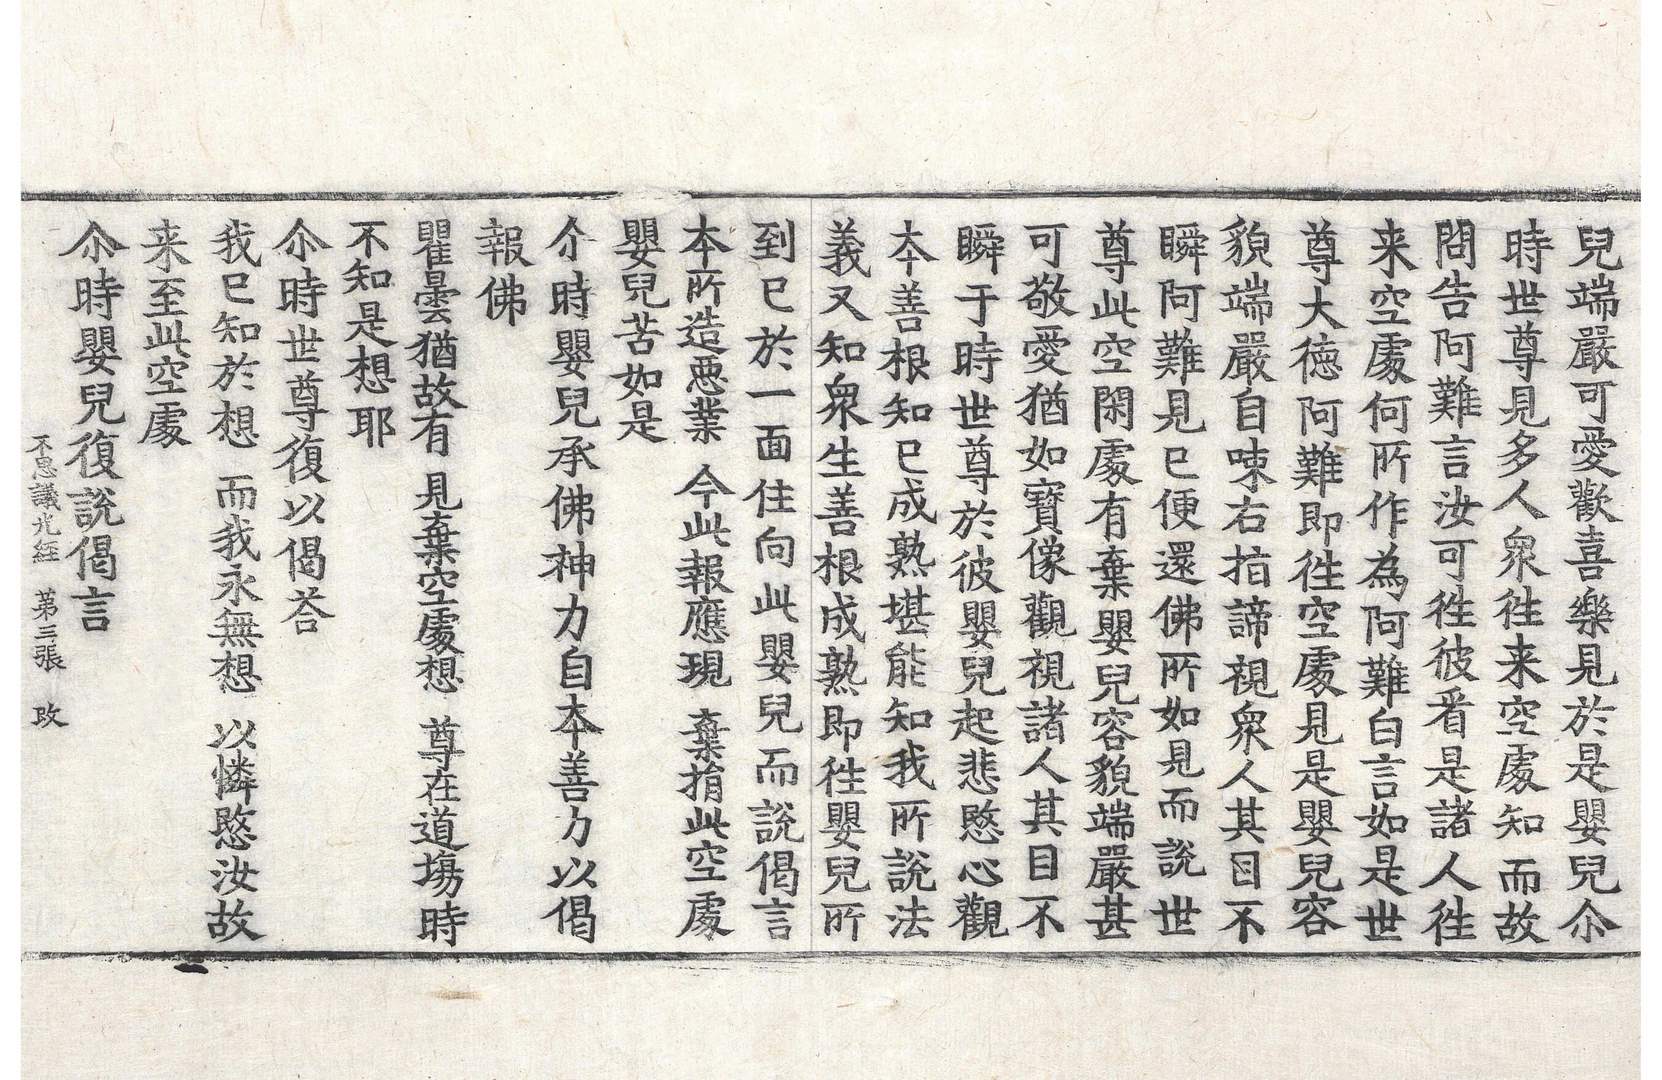 兒端嚴可愛歡喜樂見於是嬰兒尒
時世尊見多人衆徃来空處知而故
問告阿難言汝可徃彼看是諸人徃
来空處何所作為阿難白言如是世
尊大德阿難即徃空處見是嬰兒容
貌端嚴自㖒右指諦視衆人其目不
瞬阿難見已便還佛所如見而說世
尊此空閑處有棄嬰兒容貌端嚴甚
可敬愛猶如寶像觀視諸人其目不
瞬于時世尊於彼嬰兒起悲愍心觀
本善根知已成熟堪能知我所說法
義又知衆生善根成熟即徃嬰兒所
到已於一面住向此嬰兒而說偈言
本所造惡業　今此報應現　棄捐此空處
嬰兒苦如是
尒時嬰兒承佛神力自本善力以偈
報佛
瞿曇猶故有　見棄空處想　尊在道塲時
不知是想耶
尒時世尊復以偈荅
我已知於想　而我永無想　以憐愍汝故
来至此空處
尒時嬰兒復說偈言
不思議光経　第三張　改